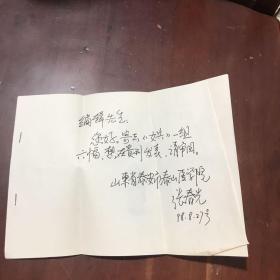 编辑先生:
您好,寄去《女娃》一组
六幅,想在贵刊发表,请审阅。
山东省泰安市泰山医学院
张春光
98.8.27号